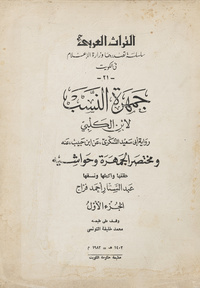 التراث العربي
سلسلة تصدرها وزارة الإعلام
في الكويت
- ٢١ -
جمهرة النسب
لابن الكلبي
رواية أبي سعيد السكري، عن ابن حبيب، عنه
ومختصر الجمهرة وحواشيه
حققها وأكملها ونسقها
عبد الستار أحمد فراج
الجزء الأول
وقف على طبعه
محمد خليفة التونسي
١٤٠٣ هـ - ١٩٨٣ م
مطبعة حكومة الكويت